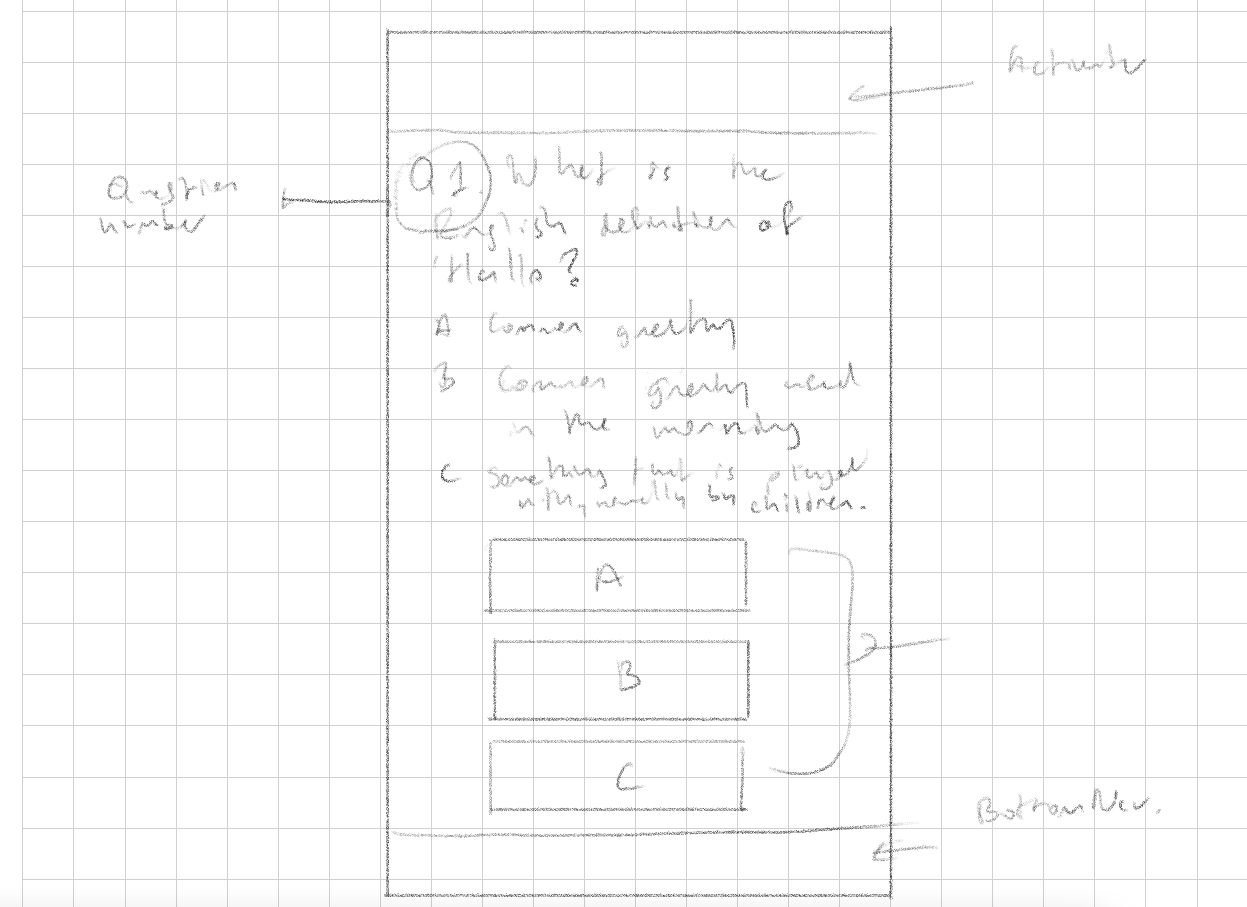 Question
number
Q1. What is the
English definition of
'Hello?
A Common greeting
B Common greeting used
in the morning
C Something that is played
with, usually by children.
A
B
C
Bottom Nav.